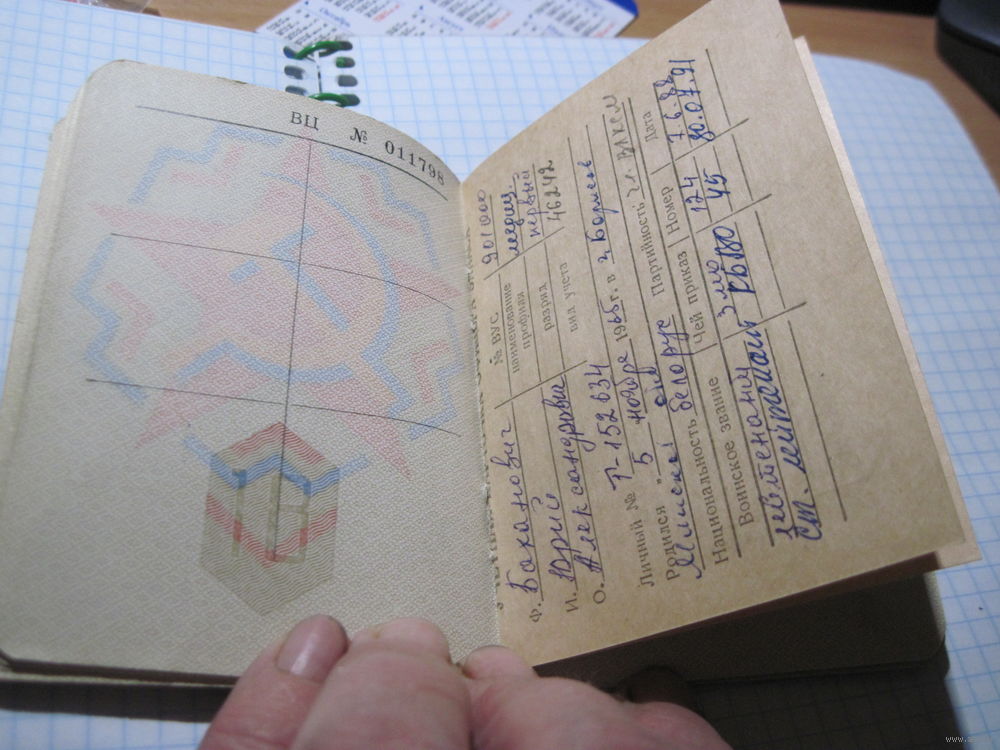 ВЦ № 011798
Ф. Баханович
И. Юрий
О. Александрович
№ ВУС 901000
наименование профиля медиц.
разряд первый
вид учета 46242
Личный № Т-152634
Родился " 5 ноября 1965 г. в г. Борисов
Минской обл Партийность чл. ВЛКСМ
Национальность белорус
Воинское звание Чей приказ Номер Дата
лейтенант З МО 124 7.6.88
ст. лейтенант РБВО 45 30.07.91